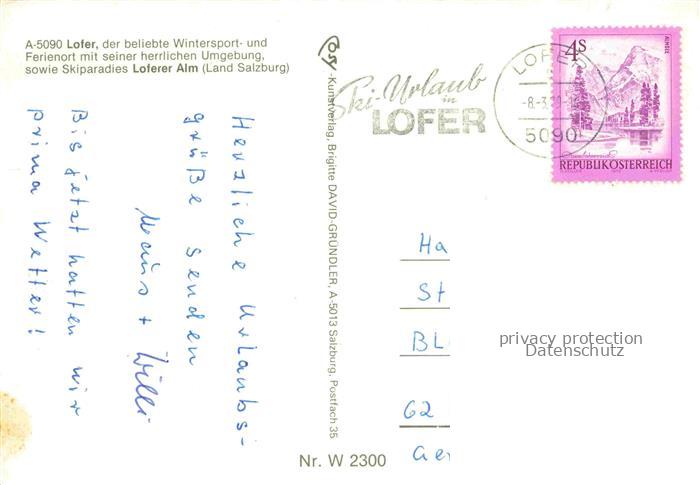 A-5090 Lofer, der beliebte Wintersport- und
Ferienort mit seiner herrlichen Umgebung,
sowie Skiparadies Loferer Alm (Land Salzburg)
Herzliche Urlaubs-
grüße senden
Maus + Willi
Bis jetzt hatten wir
prima Wetter!
Cosy-Kunstverlag, Brigitte DAVID-GRÜNDLER, A-5013 Salzburg, Postfach 35
Nr. W 2300
Ski-Urlaub
in
LOFER
LOFER
5090
4S
ALMSEE
REPUBLIK ÖSTERREICH
Ha
St
BL
62
Ge
privacy protection
Datenschutz